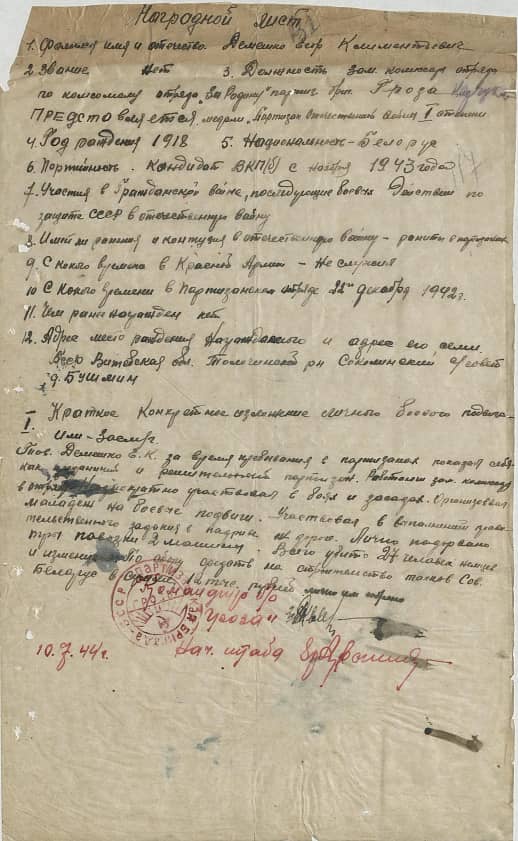 Наградной лист
1. Фамилия имя и отчество. Демешко Егор Климентьевич
2. Звание нет 3. Должность зам. комиссара отряда
по комсомолу отряда "За Родину" партиз. бриг. Гроза
Представляется, медали "Партизан Отечественной войны I степени
4. Год рождения 1918 5. Национальность - Белорус
6. Партийность. Кандидат ВКП(б) с ноября 1943 года
7. Участия в Гражданской войне, последующие боевых действиях по
защите СССР в отечественную войну
8. Имеет ли ранения и контузия в отечественную войну -
9. С какого времени в Красной Армии - Не служил
10 С какого времени в Партизанском отряде 22 декабря 1942 г.
11. Чем ранее награжден нет
12. Адрес место рождения Награжденного и адрес его семьи
БССР Витебская обл. Толочинский рн с/совет
д. Бушмин
I. Краткое Конкретное изложение личного боевого подвига
или заслуг.
Тов. Демешко Е. К. за время пребывания в партизанах показал себя
как и решительный партизан. Работая зам. комиссара
в отряде участвовал в боях и засадах. Организовал
молодежь на боевые подвиги. Участвовал в
задания в ж. дороги. Лично подорвано
2 машины. Всего убито 27 немцев
и средств на строительство танков Сов.
Белорус 12 тыс. рублей
Командир п/б
"Гроза"
10.7.44 г. Нач. штаба